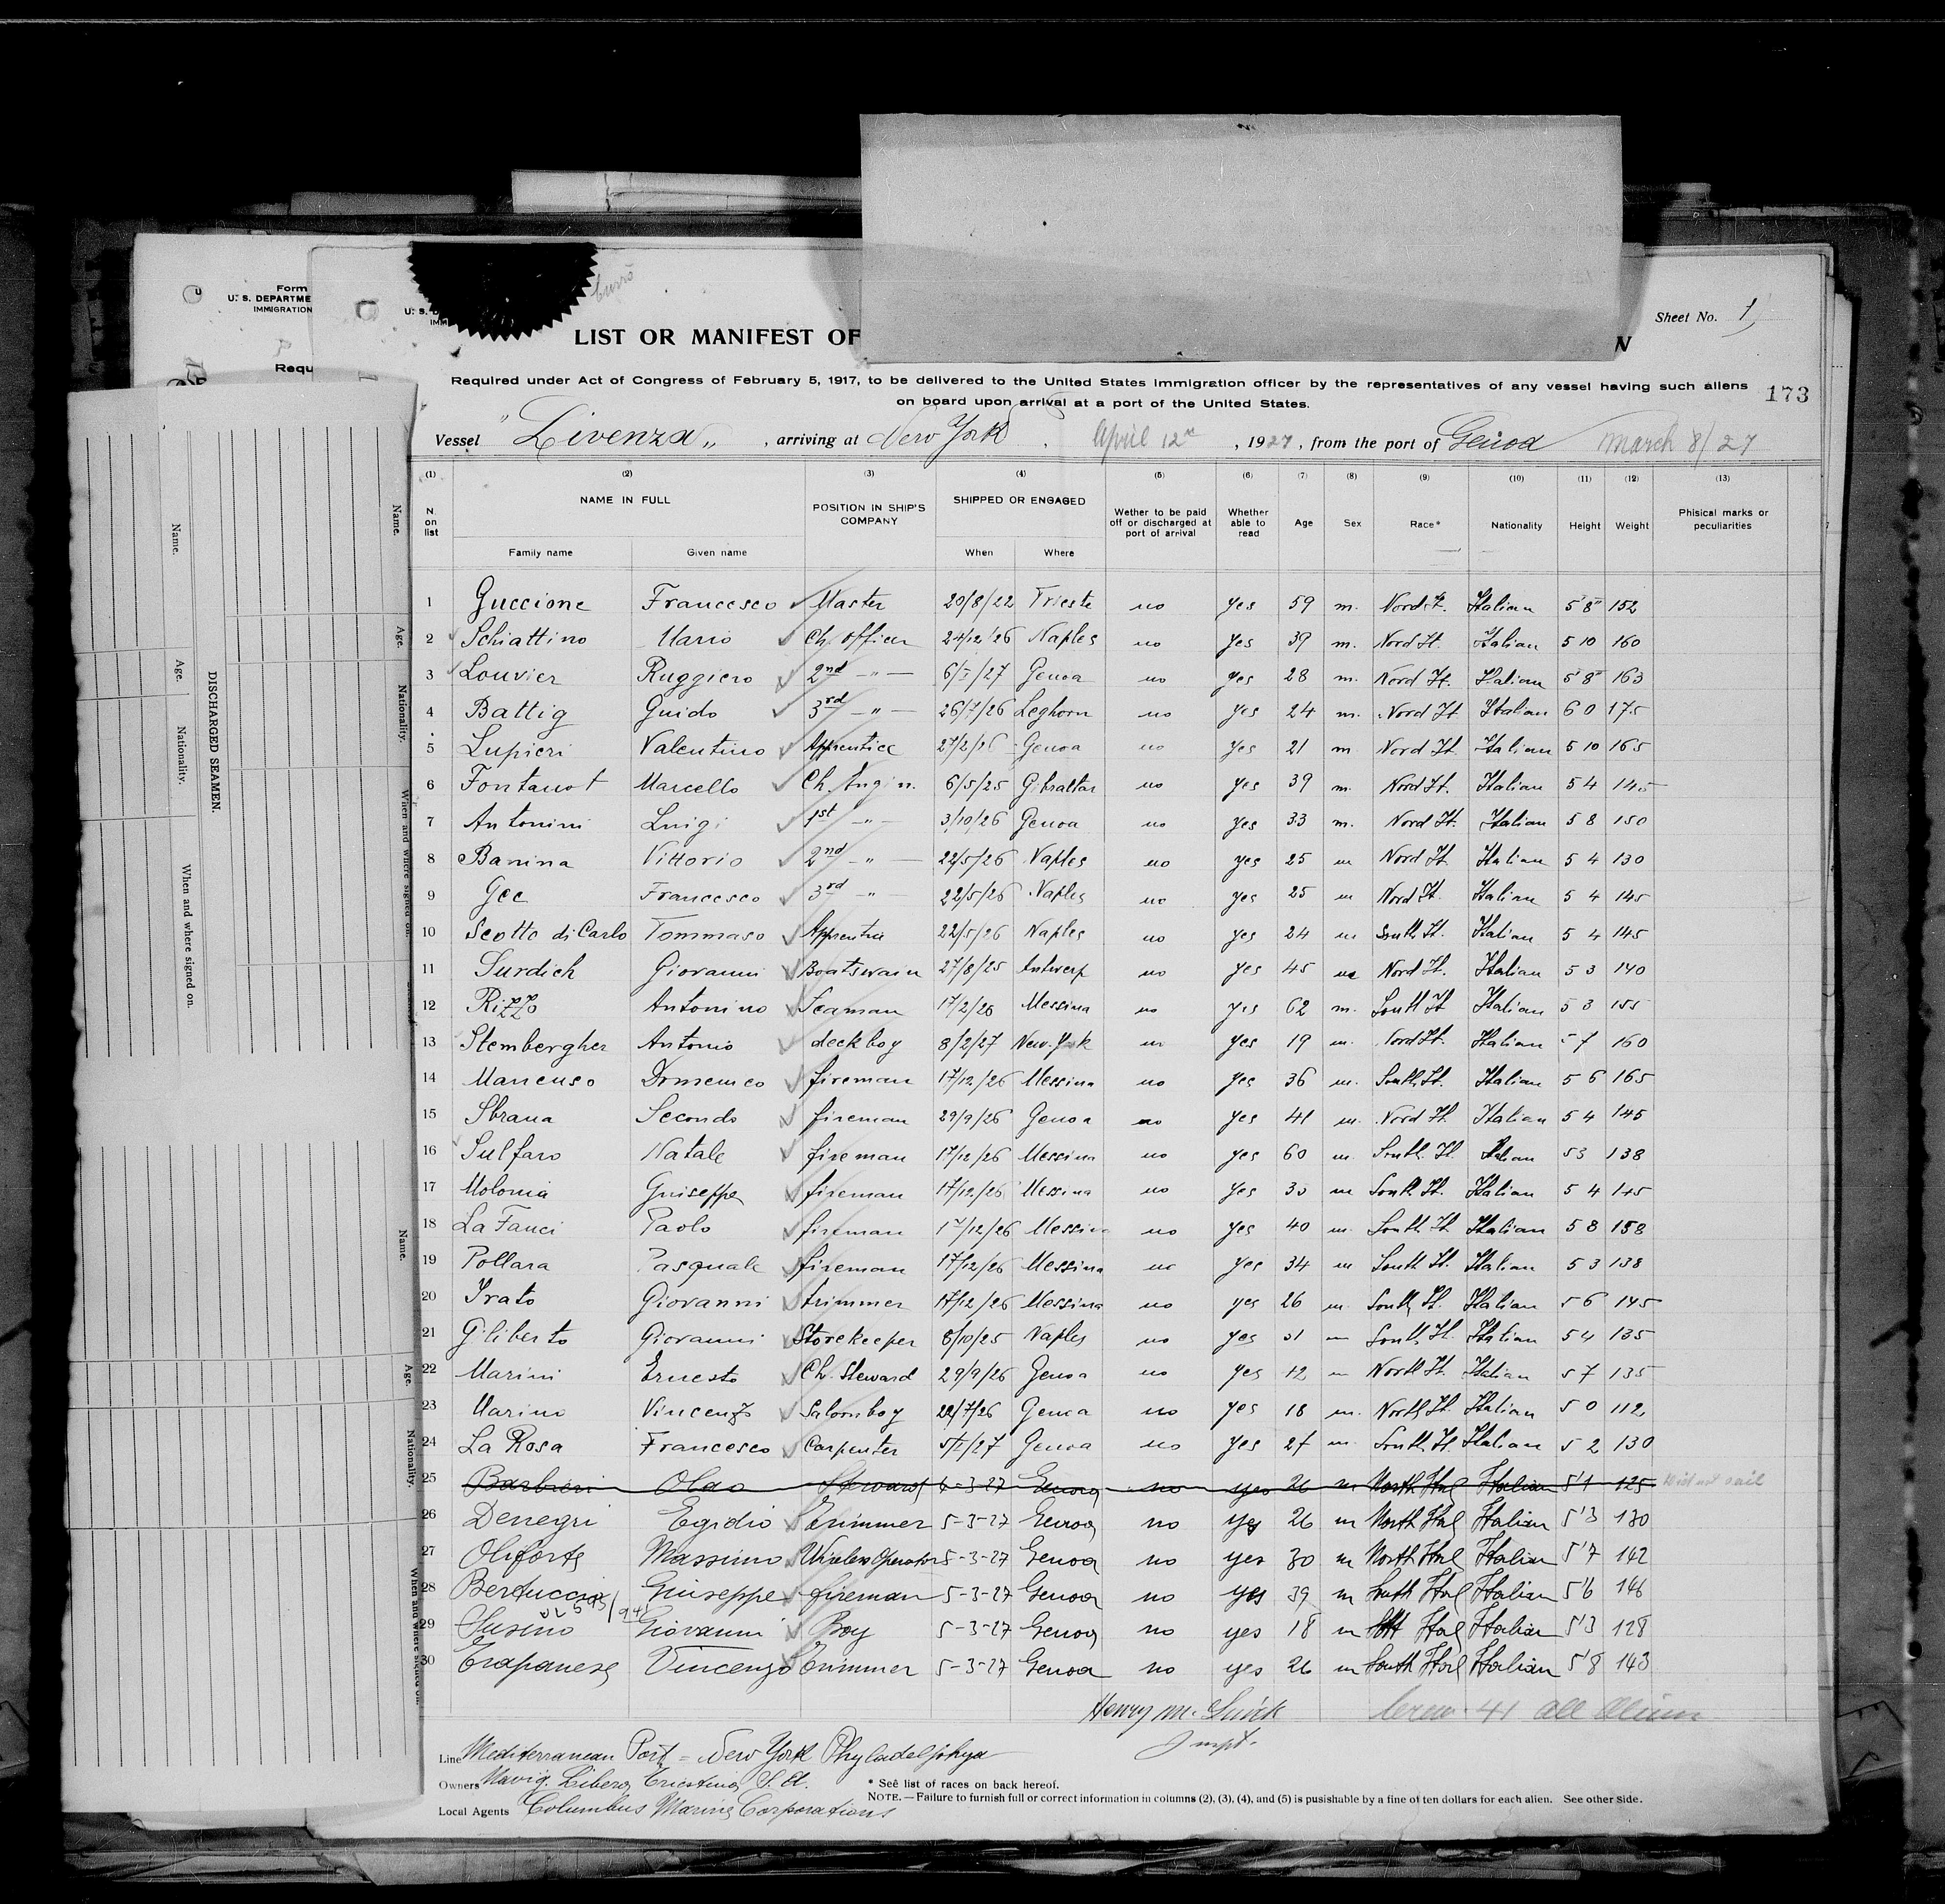 Form
U. S. DEPARTME
IMMIGRATION
U. S. D
IMM
Requ
Curro
Sheet No. 1
LIST OR MANIFEST OF
N
Required under Act of Congress of February 5, 1917, to be delivered to the United States Immigration officer by the representatives of any vessel having such aliens
on board upon arrival at a port of the United States.
173
Vessel "Livenza„ , arriving at New York . April 12th , 1927, from the port of Genoa March 8/27
(1) (2) (3) (4) (5) (6) (7) (8) (9) (10) (11) (12) (13)
N. on list NAME IN FULL POSITION IN SHIP'S COMPANY SHIPPED OR ENGAGED Wether to be paid off or discharged at port of arrival Whether able to read Age Sex Race* Nationality Height Weight Phisical marks or peculiarities
Family name Given name When Where
1 Guccione Francesco Master 20/8/22 Trieste no yes 59 m. Nord It. Italian 5'8" 152
2 Schiattino Mario Ch. officer 24/12/26 Naples no yes 39 m. Nord It. Italian 5 10 160
3 Louvier Ruggiero 2nd -"- 6/I/27 Genoa no yes 28 m. Nord It. Italian 5'8" 163
4 Battig Guido 3rd -"- 26/7/26 Leghorn no yes 24 m. Nord It Italian 6 0 175
5 Lupieri Valentino Apprentice 27/2/26 Genoa no yes 21 m Nord It. Italian 5 10 165
6 Fontanot Marcello Ch. Angin. 6/5/25 Gibraltar no yes 39 m. Nord It. Italian 5 4 145
7 Antonini Luigi 1st -"- 3/10/26 Genoa no yes 33 m. Nord It. Italian 5 8 150
8 Banina Vittorio 2nd -"- 22/5/26 Naples no yes 25 m Nord It Italian 5 4 130
9 Gec Francesco 3rd -"- 22/5/26 Naples no yes 25 m Nord It. Italian 5 4 145
10 Scotto di Carlo Tommaso Apprentice 22/5/26 Naples no yes 24 m South It. Italian 5 4 145
11 Surdich Giovanni Boatswain 27/8/25 Antwerp no yes 45 m Nord It. Italian 5 3 140
12 Rizzo Antonino Seaman 17/2/26 Messina no yes 62 m. South It Italian 5 3 155
13 Stembergher Antonio deck boy 8/2/27 New-York no yes 19 m. Nord It. Italian 5 7 160
14 Mancuso Domenico fireman 17/12/26 Messina no yes 36 m. South It. Italian 5 6 165
15 Sbrana Secondo fireman 29/9/26 Genoa no yes 41 m. Nord It. Italian 5 4 145
16 Sulfaro Natale fireman 17/12/26 Messina no yes 60 m. South It. Italian 5 3 138
17 Molonia Guiseppe fireman 17/12/26 Messina no yes 30 m South It. Italian 5 4 145
18 La Fauci Paolo fireman 17/12/26 Messina no yes 40 m. South It Italian 5 8 158
19 Pollara Pasquale fireman 17/12/26 Messina no yes 34 m South It. Italian 5 3 138
20 Irato Giovanni trimmer 17/12/26 Messina no yes 26 m South It. Italian 5 6 145
21 Giliberto Giovanni Storekeeper 8/10/25 Naples no yes 31 m South It. Italian 5 4 135
22 Marini Ernesto Ch. Steward 29/9/26 Genoa no yes 12 m North It. Italian 5 7 135
23 Marino Vincenzo Saloonboy 22/7/26 Genoa no yes 18 m. North It. Italian 5 0 112
24 La Rosa Francesco Carpenter 5/I/27 Genoa no yes 27 m South It Italian 5 2 130
25 Barbieri Olao Steward 6-3-27 Genoa no yes 26 m North Ital Italian 5'1 125 did not sail
26 Denegri Egidio Trimmer 5-3-27 Genoa no yes 26 m North Ital Italian 5'3 130
27 Oliforte Massimo Wireless Operator 5-3-27 Genoa no yes 30 m North Ital Italian 5'7 142
28 Bertuccio Giuseppe fireman 5-3-27 Genoa no yes 39 m South Ital Italian 5'6 146
29 Susino Giovanni Boy 5-3-27 Genoa no yes 18 m Ital Italian 5'3 128
30 Trapanese Vincenzo Trimmer 5-3-27 Genoa no yes 26 m South Ital Italian 5'8 143
Henry M. Crew 41 all
Line Mediterranean Port = New York Phyladelphya
Owners Navig. Libera Triestina S. A.
* See list of races on back hereof.
NOTE. — Failure to furnish full or correct information in columns (2), (3), (4), and (5) is pusishable by a fine of ten dollars for each alien. See other side.
Local Agents Columbus Marine Corporations
DISCHARGED SEAMEN.
Name.
Age.
Nationality.
When and where signed on.
Name.
Age.
Nationality.
When and where signed on.
Name.
Age.
Nationality.
When and where signed on.